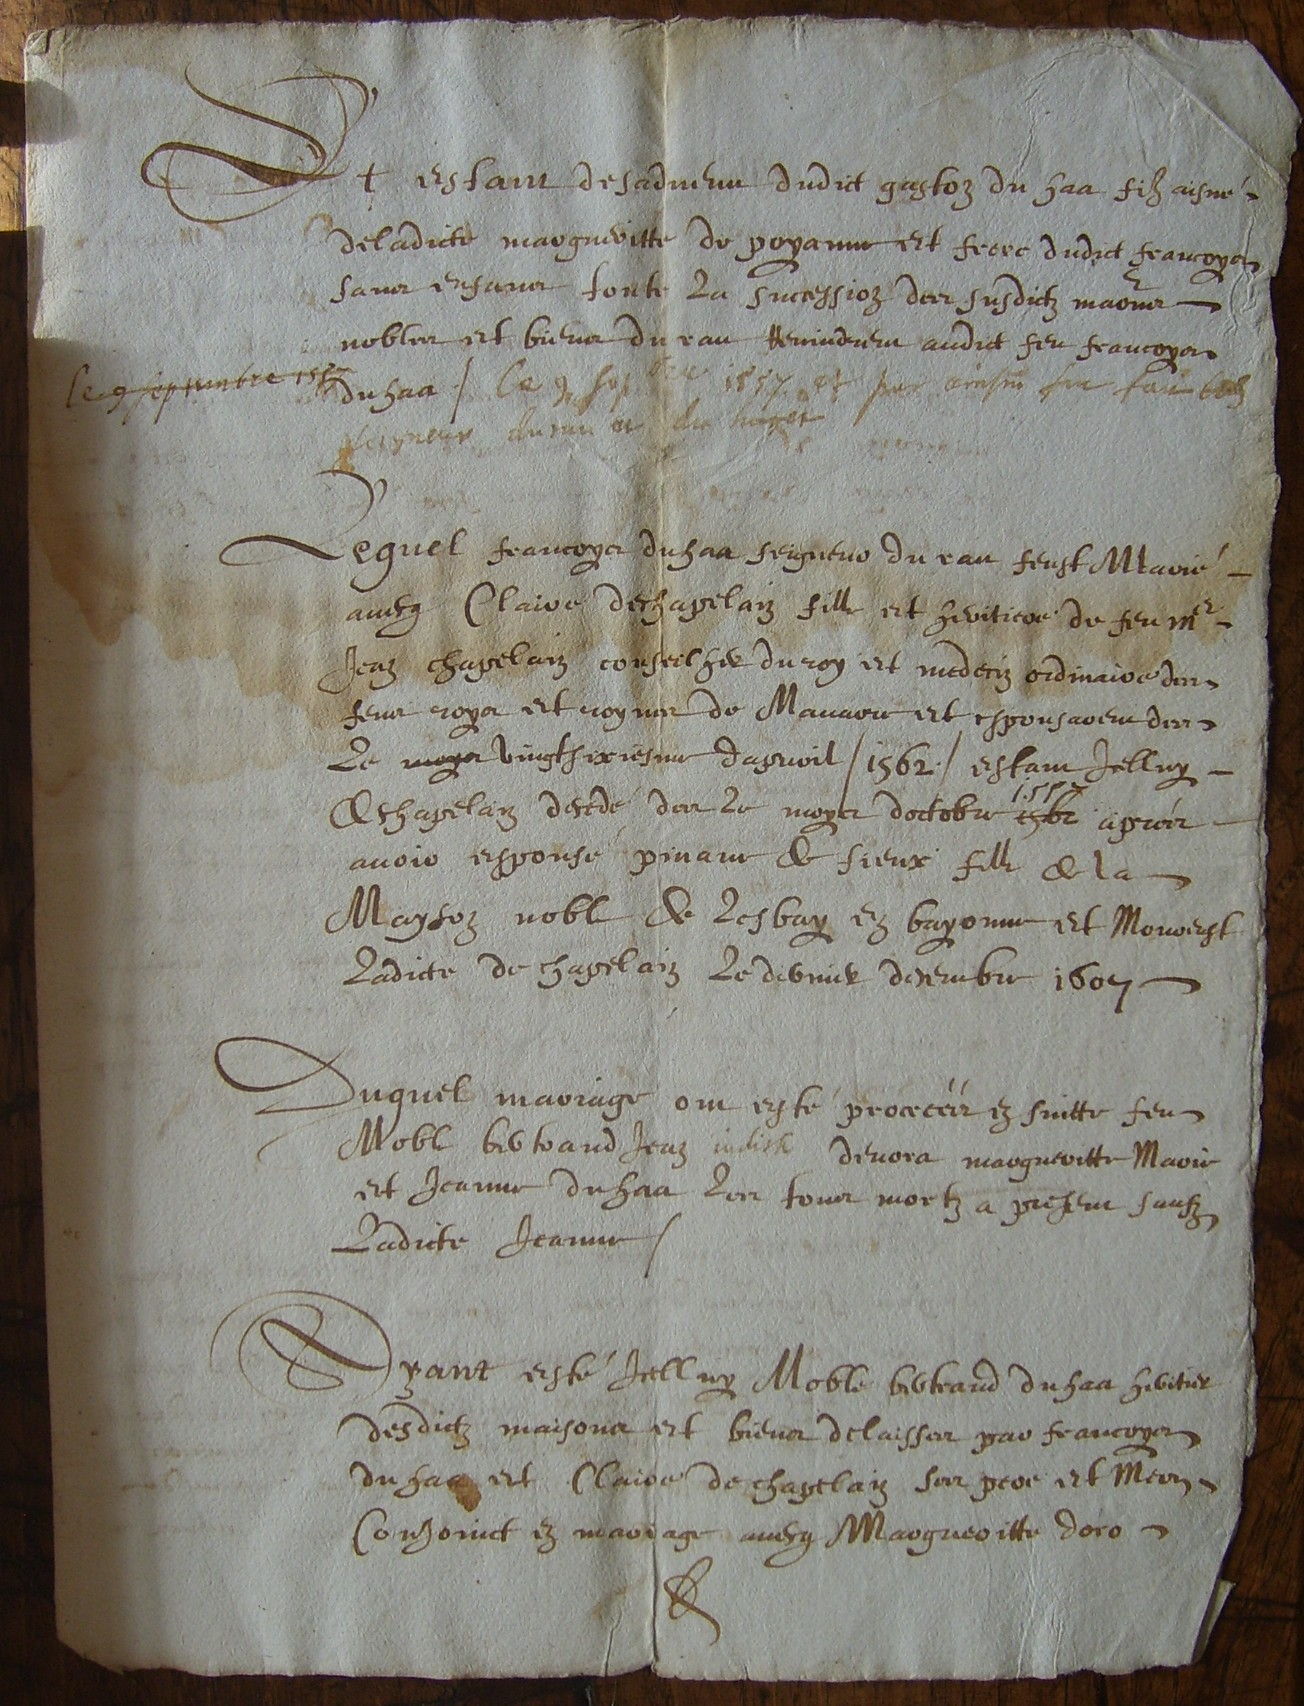 Et estant despadvenu dudict gaston du haa filz aisné
deladicte margueritte de poyanne et frere dudict francoys
sans enfans toute la succession des susdictz maons
nobles et biens du rau revindrent audict feu francoys
le 9 septembre 1557
du haa / le 9 sep bre 1557 et par ainsin feu faict
seigneur du rau et du
Lequel francoys du haa seigneur du rau feust Marié
avecq Claire dechapelain fille et heritiere de feu mr
Jean chapelain conseilher du roy et medecin ordinaire des
feus roys et roynes de Navarre et esponsarent des
le moys vingtsixiesme dapvril / 1562 / estant Jelluy
de chapelain decedé des le moys doctobre 1562 1557 apres
avoir esponsé pinane de sieux fille de la
Mayson noble de lesbay en bayonne et Mourust
ladicte de chapelain le dernier decembre 1607
Duquel mariage ont esté procreés en suitte feu
Noble bertrand Jean judith debora margueritte Marie
et Jeanne du haa les tous mortz a present saufz
ladicte Jeanne /
Ayant esté Jelluy Noble bertrand du haa heritier
desdictz maisons et biens delaisses par francoys
du haa et Claire de chapelain ses pere et Mere
Conjoinct en mariage avecq Margueritte doro